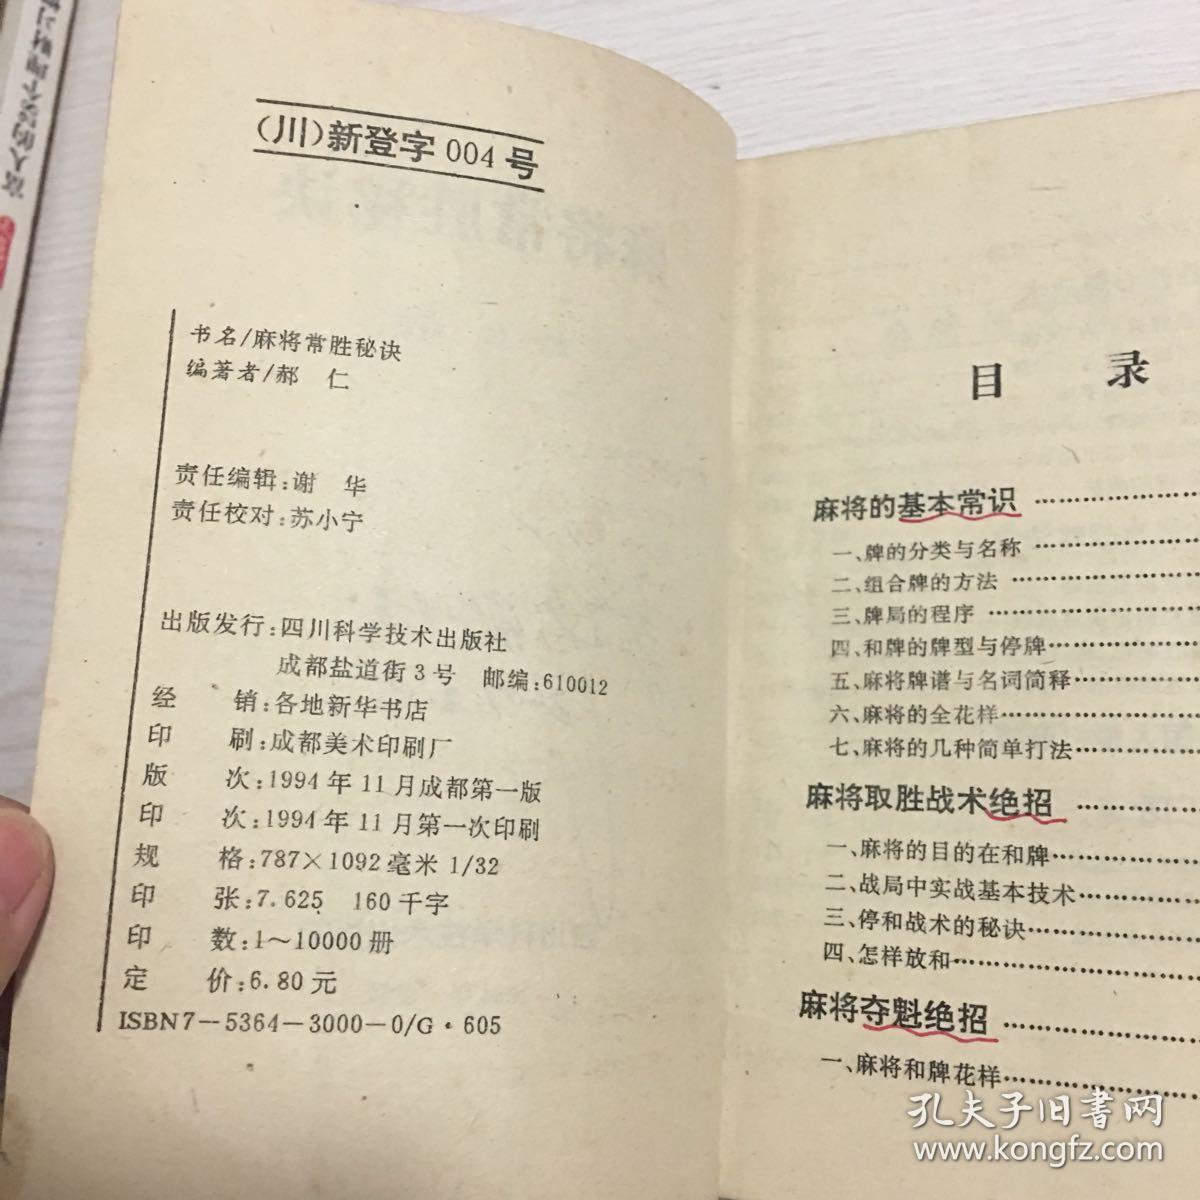 （川）新登字 004 号
书名/麻将常胜秘诀
编著者/郝　仁
责任编辑:谢　华
责任校对:苏小宁
出版发行:四川科学技术出版社
成都盐道街 3 号　邮编:610012
经　　销:各地新华书店
印　　刷:成都美术印刷厂
版　　次:1994 年 11 月成都第一版
印　　次:1994 年 11 月第一次印刷
规　　格:787×1092 毫米 1/32
印　　张:7.625　160 千字
印　　数:1～10000 册
定　　价:6.80 元
ISBN7－5364－3000－0/G・605
目　录
麻将的基本常识
一、牌的分类与名称
二、组合牌的方法
三、牌局的程序
四、和牌的牌型与停牌
五、麻将牌谱与名词简释
六、麻将的全花样
七、麻将的几种简单打法
麻将取胜战术绝招
一、麻将的目的在和牌
二、战局中实战基本技术
三、停和战术的秘诀
四、怎样放和
麻将夺魁绝招
一、麻将和牌花样
富人的55个理财习惯
孔夫子旧书网
www.kongfz.com